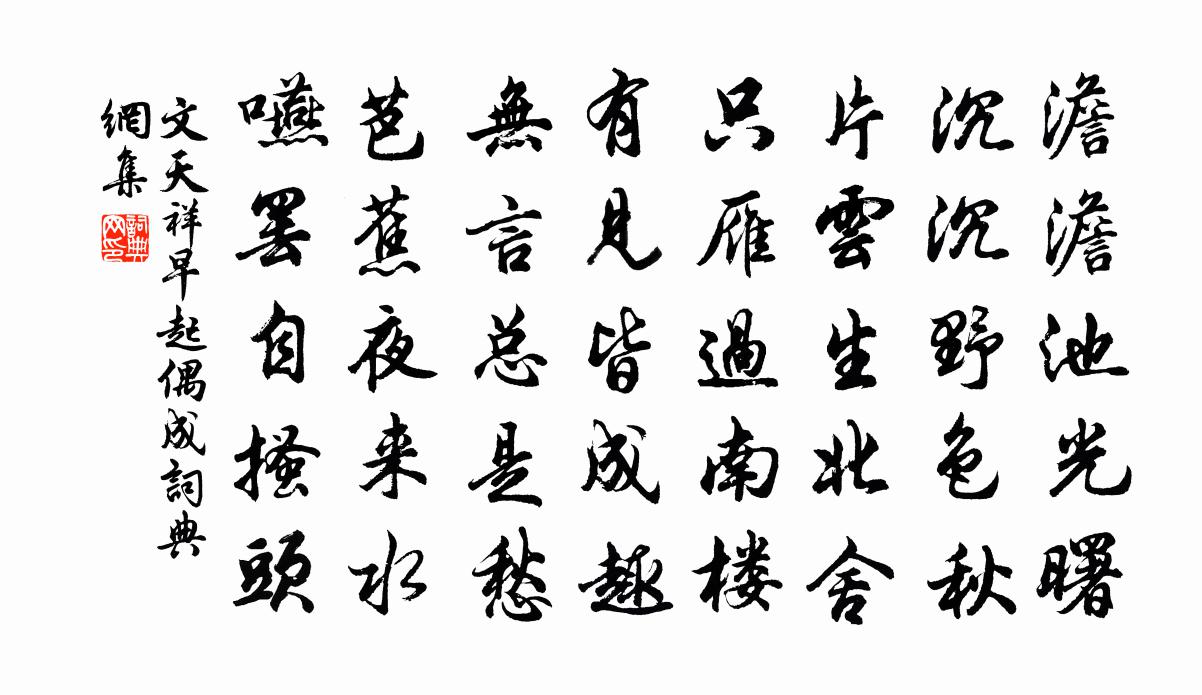 澹澹池光曙
沉沉野色秋
片雲生北舍
只雁過南楼
有見皆成趣
無言总是愁
芭蕉夜来水
嚥罢自搔頭
文天祥早起偶成詞典
網集
詞典
网印